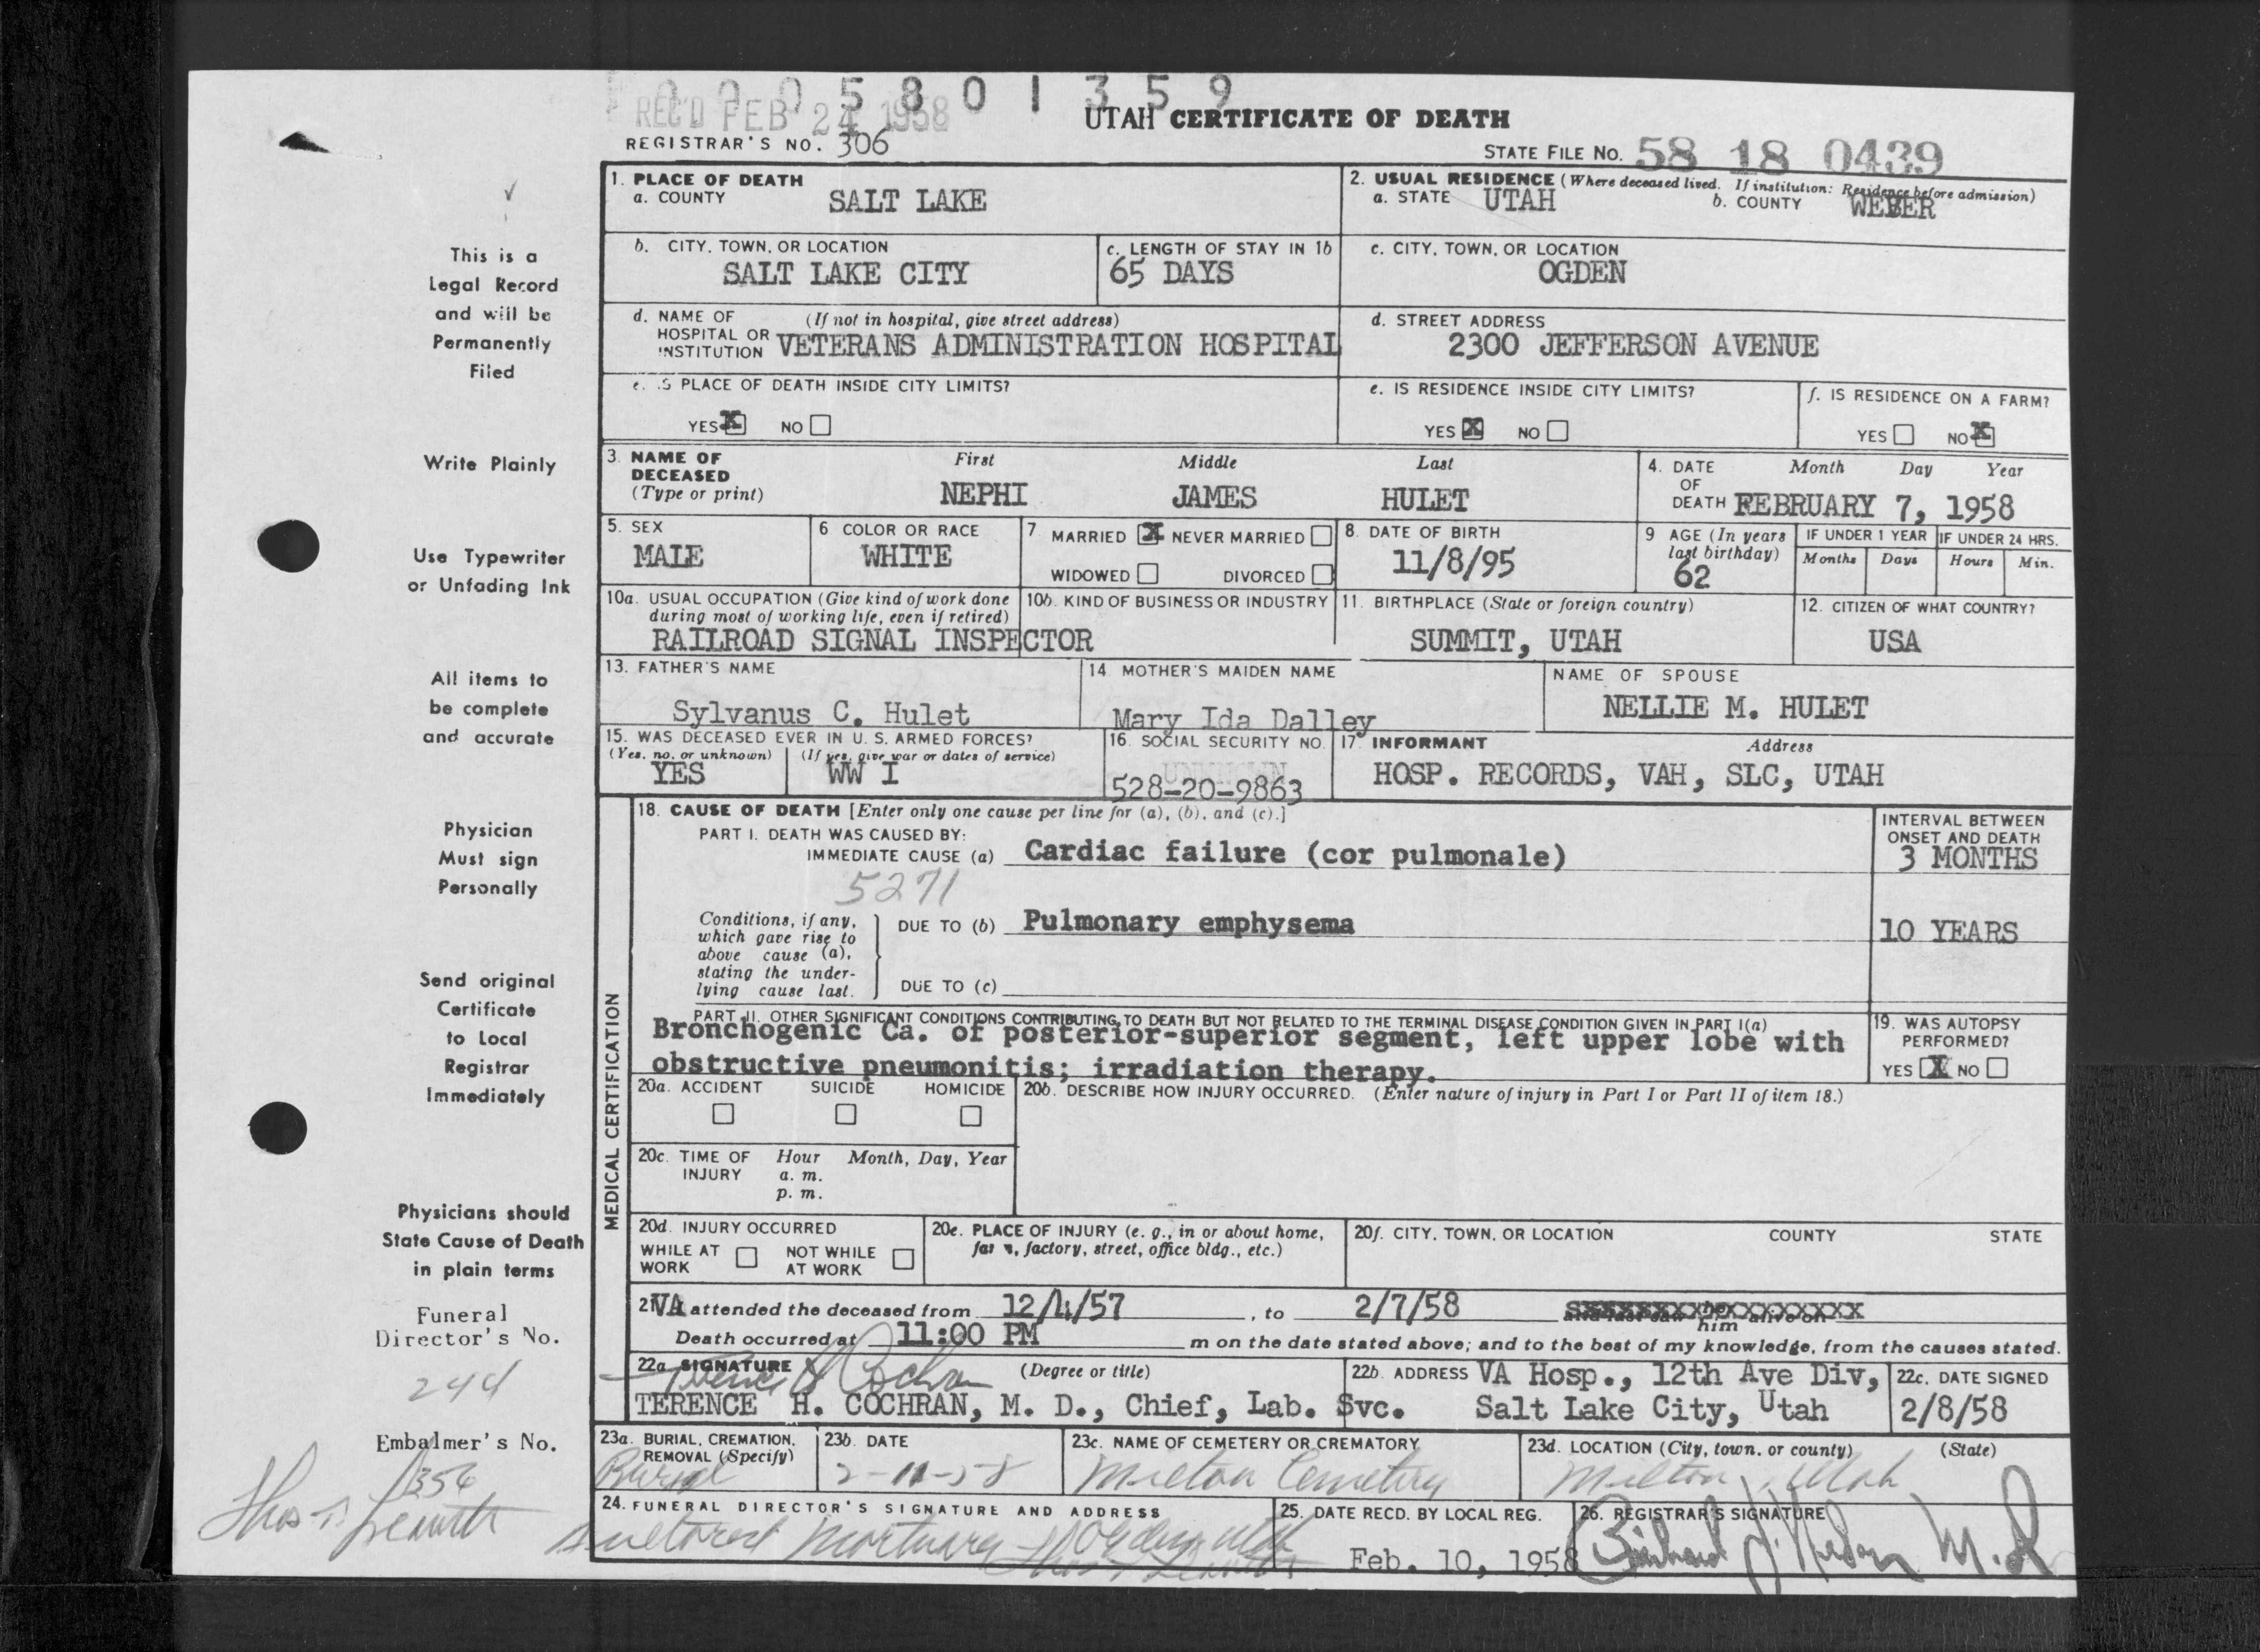 0 0 0 5 8 0 1 3 5 9
REC'D FEB 24 1958
UTAH CERTIFICATE OF DEATH
REGISTRAR'S NO. 306
STATE FILE NO. 58 18 0439
1. PLACE OF DEATH
a. COUNTY SALT LAKE
2. USUAL RESIDENCE (Where deceased lived. If institution: Residence before admission)
a. STATE UTAH b. COUNTY WEBER
b. CITY, TOWN, OR LOCATION
SALT LAKE CITY
c. LENGTH OF STAY IN 1b
65 DAYS
c. CITY, TOWN, OR LOCATION
OGDEN
d. NAME OF (If not in hospital, give street address)
HOSPITAL OR
INSTITUTION VETERANS ADMINISTRATION HOSPITAL
d. STREET ADDRESS
2300 JEFFERSON AVENUE
e. IS PLACE OF DEATH INSIDE CITY LIMITS?
YES X NO
e. IS RESIDENCE INSIDE CITY LIMITS?
YES X NO
f. IS RESIDENCE ON A FARM?
YES NO X
3. NAME OF DECEASED (Type or print)
First Middle Last
NEPHI JAMES HULET
4. DATE OF DEATH Month Day Year
FEBRUARY 7, 1958
5. SEX
MALE
6 COLOR OR RACE
WHITE
7 MARRIED X NEVER MARRIED
WIDOWED DIVORCED
8. DATE OF BIRTH
11/8/95
9 AGE (In years last birthday)
62
IF UNDER 1 YEAR
Months Days
IF UNDER 24 HRS.
Hours Min.
10a. USUAL OCCUPATION (Give kind of work done
during most of working life, even if retired)
RAILROAD SIGNAL INSPECTOR
10b. KIND OF BUSINESS OR INDUSTRY
11. BIRTHPLACE (State or foreign country)
SUMMIT, UTAH
12. CITIZEN OF WHAT COUNTRY?
USA
13. FATHER'S NAME
Sylvanus C. Hulet
14 MOTHER'S MAIDEN NAME
Mary Ida Dalley
NAME OF SPOUSE
NELLIE M. HULET
15. WAS DECEASED EVER IN U. S. ARMED FORCES?
(Yes, no, or unknown) (If yes, give war or dates of service)
YES WW I
16. SOCIAL SECURITY NO.
UNKNOWN
528-20-9863
17. INFORMANT Address
HOSP. RECORDS, VAH, SLC, UTAH
MEDICAL CERTIFICATION
18. CAUSE OF DEATH [Enter only one cause per line for (a), (b), and (c).]
PART I. DEATH WAS CAUSED BY:
IMMEDIATE CAUSE (a) Cardiac failure (cor pulmonale)
5271
INTERVAL BETWEEN
ONSET AND DEATH
3 MONTHS
Conditions, if any,
which gave rise to
above cause (a),
stating the under-
lying cause last.
DUE TO (b) Pulmonary emphysema
10 YEARS
DUE TO (c)
PART II. OTHER SIGNIFICANT CONDITIONS CONTRIBUTING TO DEATH BUT NOT RELATED TO THE TERMINAL DISEASE CONDITION GIVEN IN PART I(a)
Bronchogenic Ca. of posterior-superior segment, left upper lobe with
obstructive pneumonitis; irradiation therapy.
19. WAS AUTOPSY
PERFORMED?
YES X NO
20a. ACCIDENT SUICIDE HOMICIDE
20b. DESCRIBE HOW INJURY OCCURRED. (Enter nature of injury in Part I or Part II of item 18.)
20c. TIME OF INJURY Hour Month, Day, Year
a. m.
p. m.
20d. INJURY OCCURRED
WHILE AT WORK NOT WHILE AT WORK
20e. PLACE OF INJURY (e. g., in or about home,
farm, factory, street, office bldg., etc.)
20f. CITY, TOWN, OR LOCATION COUNTY STATE
21 VA attended the deceased from 12/4/57, to 2/7/58 and last saw her him alive on
Death occurred at 11:00 PM m on the date stated above; and to the best of my knowledge, from the causes stated.
22a SIGNATURE (Degree or title)
Terence H Cochran
TERENCE H. COCHRAN, M. D., Chief, Lab. Svc.
22b. ADDRESS VA Hosp., 12th Ave Div,
Salt Lake City, Utah
22c. DATE SIGNED
2/8/58
23a. BURIAL, CREMATION,
REMOVAL (Specify)
Burial
23b. DATE
2-11-58
23c. NAME OF CEMETERY OR CREMATORY
Milton Cemetery
23d. LOCATION (City, town, or county) (State)
Milton, Utah
24. FUNERAL DIRECTOR'S SIGNATURE AND ADDRESS
Mortuary Ogden, Utah
25. DATE RECD. BY LOCAL REG.
Feb. 10, 1958
26. REGISTRAR'S SIGNATURE
M.D.
This is a
Legal Record
and will be
Permanently
Filed
Write Plainly
Use Typewriter
or Unfading Ink
All items to
be complete
and accurate
Physician
Must sign
Personally
Send original
Certificate
to Local
Registrar
Immediately
Physicians should
State Cause of Death
in plain terms
Funeral
Director's No.
244
Embalmer's No.
1356